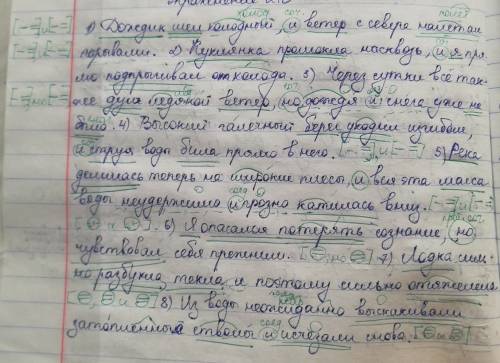 1) Дождик шёл холодный, и ветер с севера налетал
порывами. 2) Кухлянка промокла насквозь, и я пря-
мо подпрыгивал от холода. 3) Через сутки всё так-
же дул ледяной ветер, но дождя и снега уже не
было. 4) Высокий галечный берег уходил изгибом,
и струя воды била прямо в него. [- =] и [- =] 5) Река
делилась теперь на широкие плёсы, и вся эта масса
воды неудержимо и грозно катилась вниз. [- =] и [- =]
6) Я опасался потерять сознание, но
чувствовал себя прежним. 7) Лодка силь-
но разбухла, текла и поэтому сильно отяжелела.
8) Из воды неожиданно выскакивали
затопленные стволы и исчезали снова.